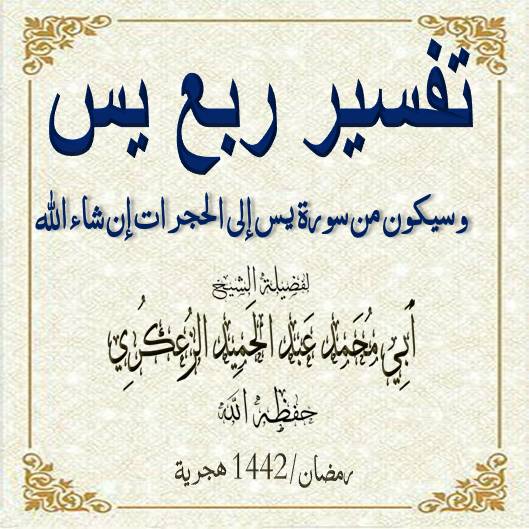 تفسير ربع يس
وسيكون من سورة يس إلى الحجرات إن شاء الله
لفضيلة الشيخ
أَبِي مُحَمَّد عَبْد الحَمِيد الزُّعْكُرِي
حفظه الله
رمضان/1442 هجرية